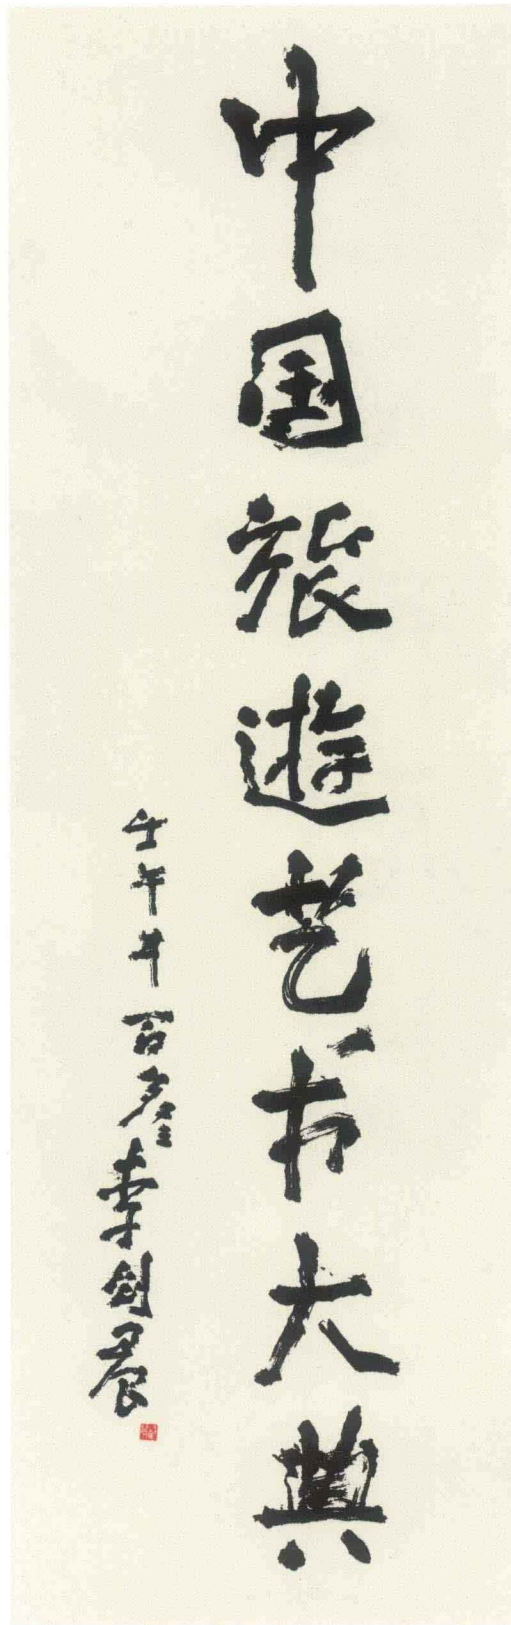 中国旅遊艺术大典
壬午年百叁李剑晨